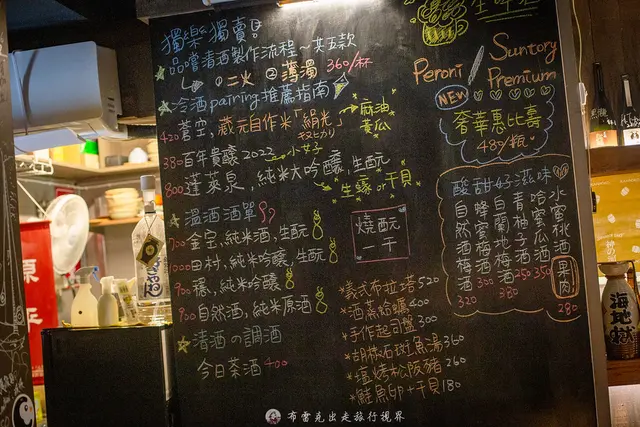 獨樂獨賣!
品嚐清酒製作流程~共五款
二火 薄濁 360/杯
冷酒pairing推薦指南
420 蒼空,藏元自作米「絹光」
麻油
黃瓜
380 百年貴釀2022
小女子
800 蓬萊泉,純米大吟釀,生酛
生蠔or干貝
溫酒酒單
700 金宝,純米酒,生酛
1000 田村,純米吟釀
900 穏,純米吟釀
900 自然酒,純米原酒
清酒の調酒
今日茶酒 400
燒酎
一干
生啤酒
Peroni
Suntory
Premium
NEW
奢華惠比壽
489/瓶
酸甜好滋味
自然梅酒 320
蜂蜜梅酒 300
白蘭地梅酒 380
青柚子酒 250
哈蜜瓜酒 350
水蜜桃酒 果肉 280
*義式布拉塔 520
*酒蒸蛤蠣 400
*手作起司盤 300
*胡麻石斑魚湯 360
*塩烤松阪豬 260
*鮭魚卵+干貝 180
海地獄
原
平
布雷克出走旅行視界